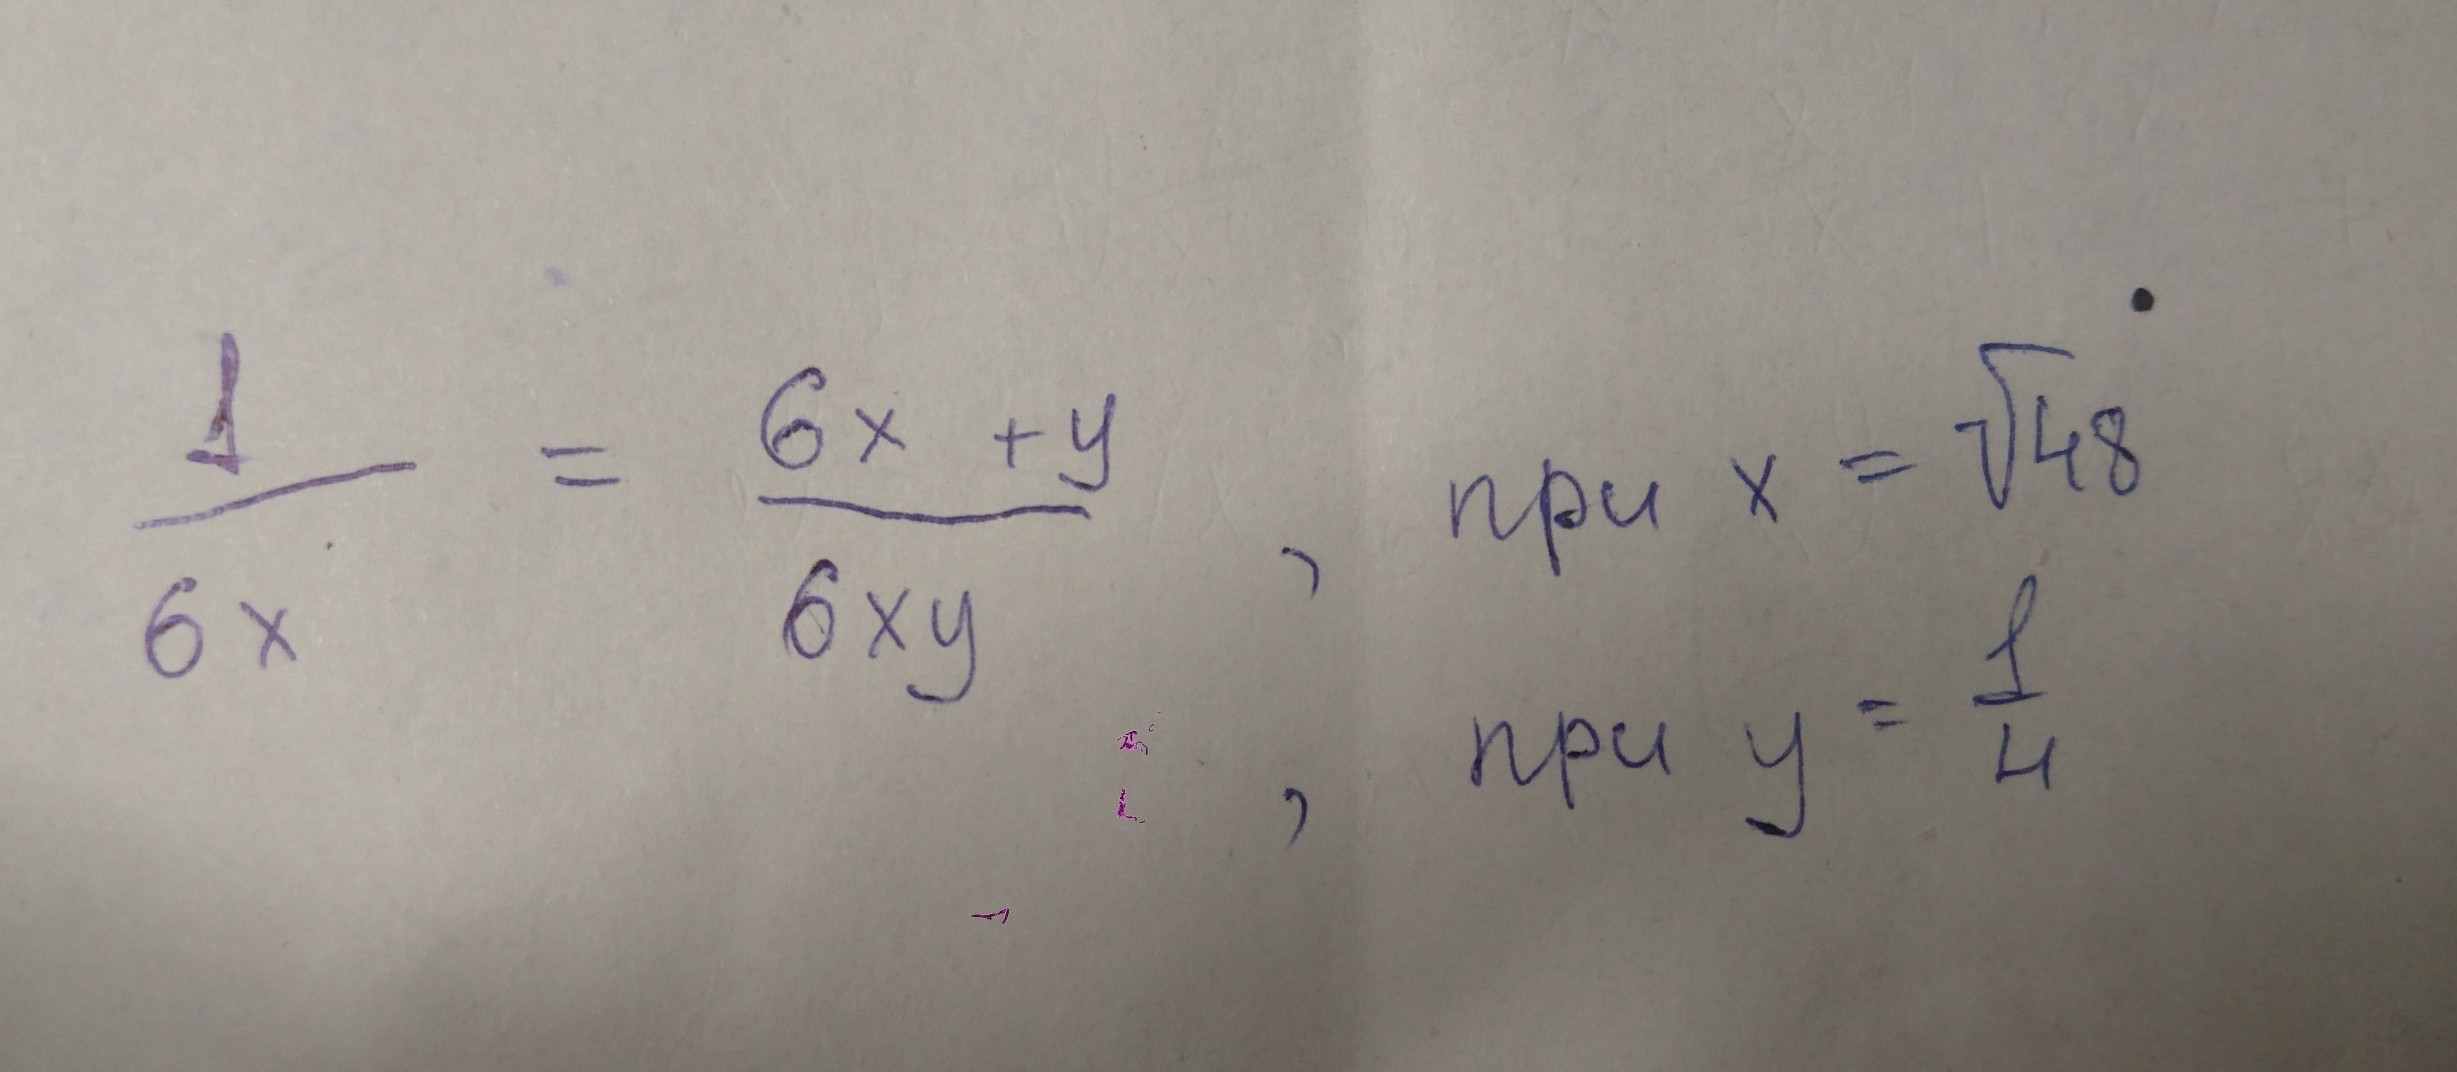 1/6x = 6x + y/6xy, при x = √48
, при y = 1/4